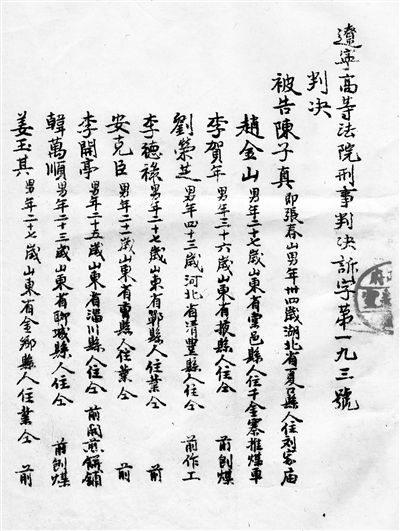 遼寧高等法院刑事判決訴字第一九三號
判決
被告陳子真即張春山男年卅四歲湖北省夏口縣人住刘家庙
趙金山男年二十七歲山東省雲邑縣人住千金寨推煤車
李賀年男年三十六歲山東省掖縣人住仝 前刨煤
劉榮芝男年四十二歲河北省清豐縣人住仝 前作工
李德祿男年二十七歲山東省鄆縣人住業仝 前
安克臣男年二十二歲山東省曹縣人住業仝 前
李開亭男年二十五歲山東省淄川縣人住仝 前開煎餅鋪
韓萬順男年二十三歲山東省聊城縣人住仝 前刨煤
姜玉其男年二十七歲山東省金鄉縣人住業仝 前